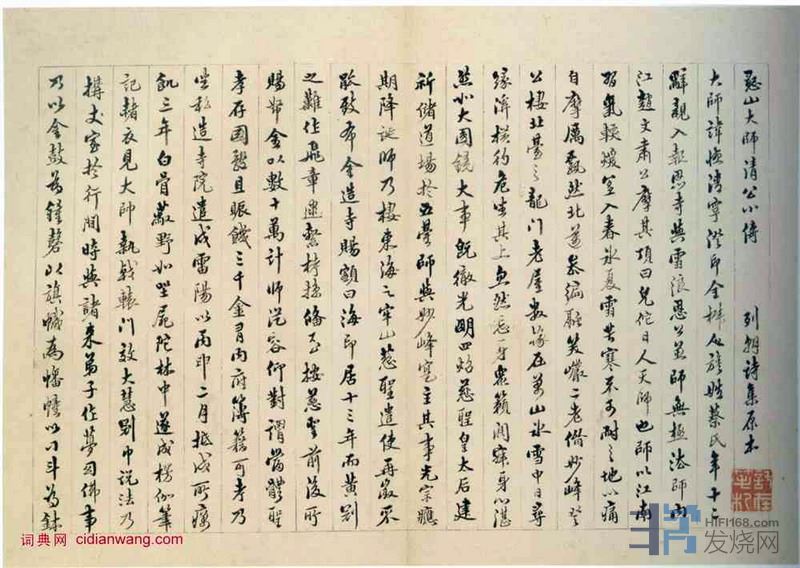 憨山大師清公小傳 列朝詩集原本
大師諱德清字澄印全椒人族姓蔡氏年十二
辭親入報恩寺與雪浪恩公並師無極法師內
江趙文肅公摩其頂曰兒佗日人天師也師以江南
習氣輭煖宜入春冰夏雪苦寒不可耐之地以痛
自摩厲飄然北邁參徧融笑巖二老偕妙峰登
公棲北臺之龍門老屋數椽在萬山冰雪中日尋
緣溪橫彴危坐其上兀然忘身衆籟闃寂身心湛
然如大圓鏡大事既徹光明四炤慈聖皇太后建
祈儲道場於五臺師與妙峰寔主其事光宗應
期降誕師乃棲東海之牢山慈聖遣使再徵不
赴發帑金造寺賜額曰海印居十三年而黃冠
之難作飛章逮繫拷掠備至按慈聖前後所
賜帑金以數十萬計師從容仰對謂當體聖
孝存國體且賑饑三千金有內府簿籍可考乃
坐私造寺院遣戍雷陽以丙申二月抵戍所癘
飢三年白骨蔽野如坐屍陀林中遂成楞伽筆
記赭衣見大帥執戟轅門效大慧冠巾說法乃
構丈室於行間時與諸來弟子作夢幻佛事
乃以金鼓為鐘磬以旗幟為幡幢以刁斗為鉢
词典网 cidianwang.com
HIFI168.com
发烧网